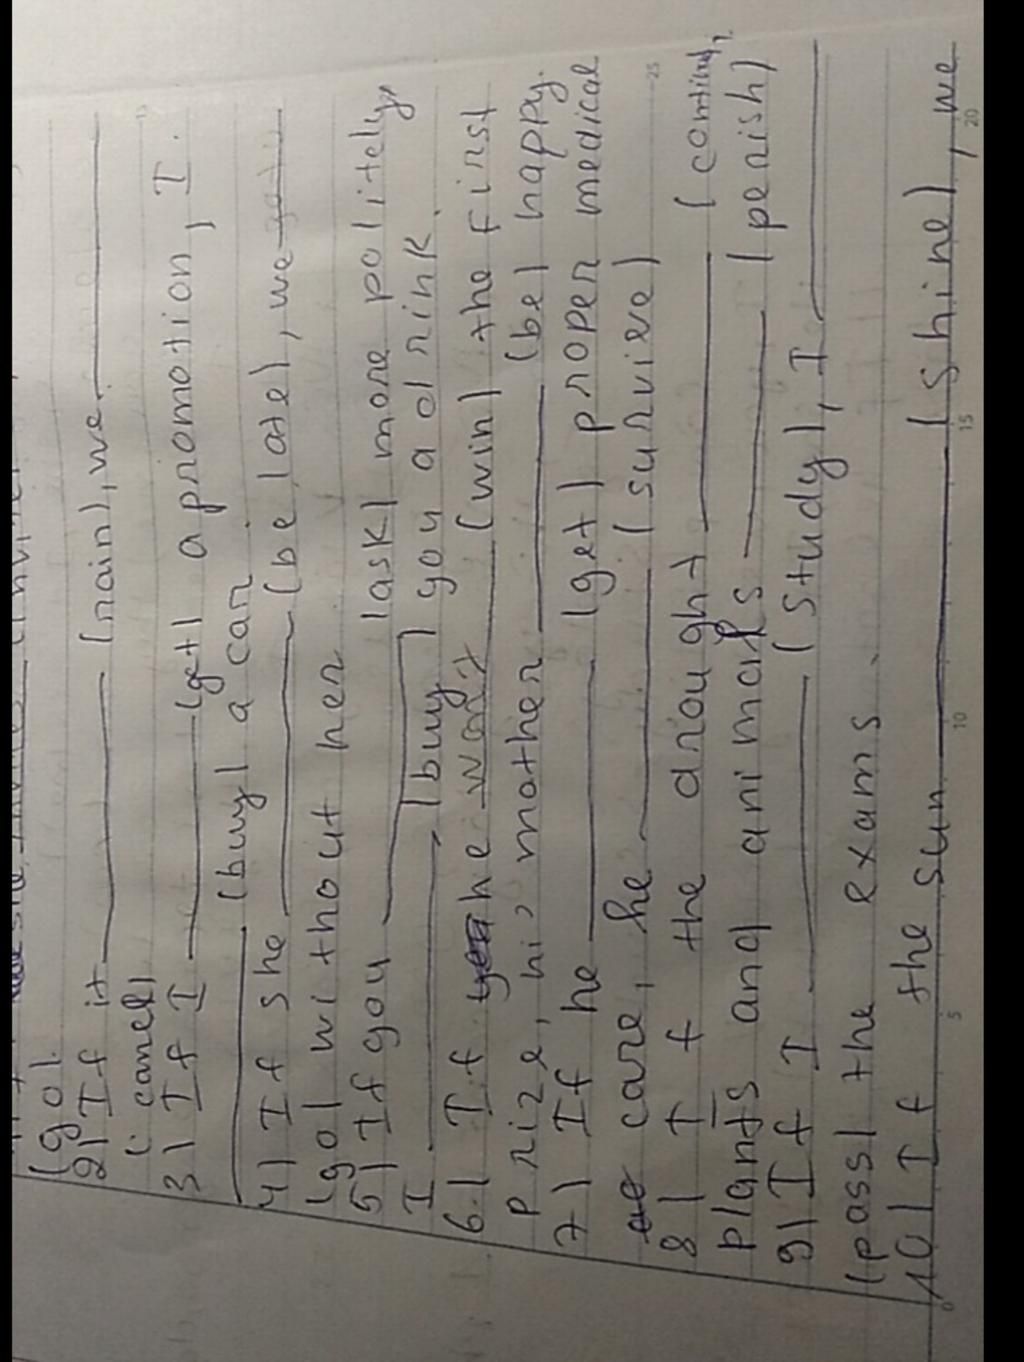 (go).
2) If it ____ (rain), we ____
(cancel)
3) If I ____ (get) a promotion, I
____ (buy) a car
4) If she ____ (be late), we ____
(go) without her
5) If you ____ (ask) more politely,
I ____ (buy) you a drink.
6.) If he ____ (win) the first
prize, hi, mother ____ (be) happy.
7) If he ____ (get) proper medical
care, he ____ (survive)
8) If the drought ____ (continu,
plants and animals ____ (perish)
9) If I ____ (study), I ____
(pass) the exams.
10) If the sun ____ (shine), we